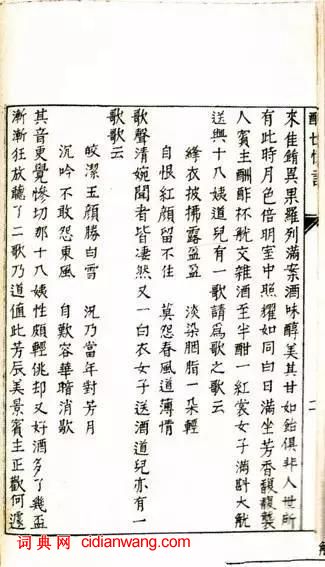 醒世恒言
來佳餚異果羅列滿案酒味醇美其甘如飴俱非人世所
有此時月色倍明室中照耀如同白日滿坐芳香馥馥襲
人賓主酬酢杯觥交雜酒至半酣一紅裳女子滿斟大觥
送與十八姨道兒有一歌請爲歌之歌云
絳衣披拂露盈盈　淡染胭脂一朶輕
自恨紅顏留不住　莫怨春風道薄情
歌聲清婉聞者皆淒然又一白衣女子送酒道兒亦有一
歌歌云
皎潔玉顏勝白雪　況乃當年對芳月
沉吟不敢怨東風　自歎容華暗消歇
其音更覺慘切那十八姨性頗輕佻却又好酒多了幾盃
漸漸狂放聽了二歌乃道值此芳辰美景賓主正歡何遽
二
词典网 cidianwang.com